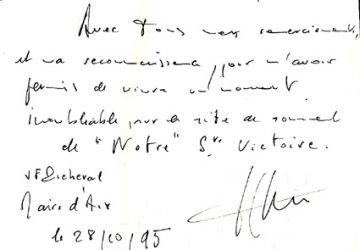 Avec tous mes remerciements
et ma reconnaissance pour m'avoir
permis de vivre un moment
inoubliable, sur le site du sommet
de "Notre" Ste Victoire.
JF Picheral
Maire d'Aix
le 28/10/95